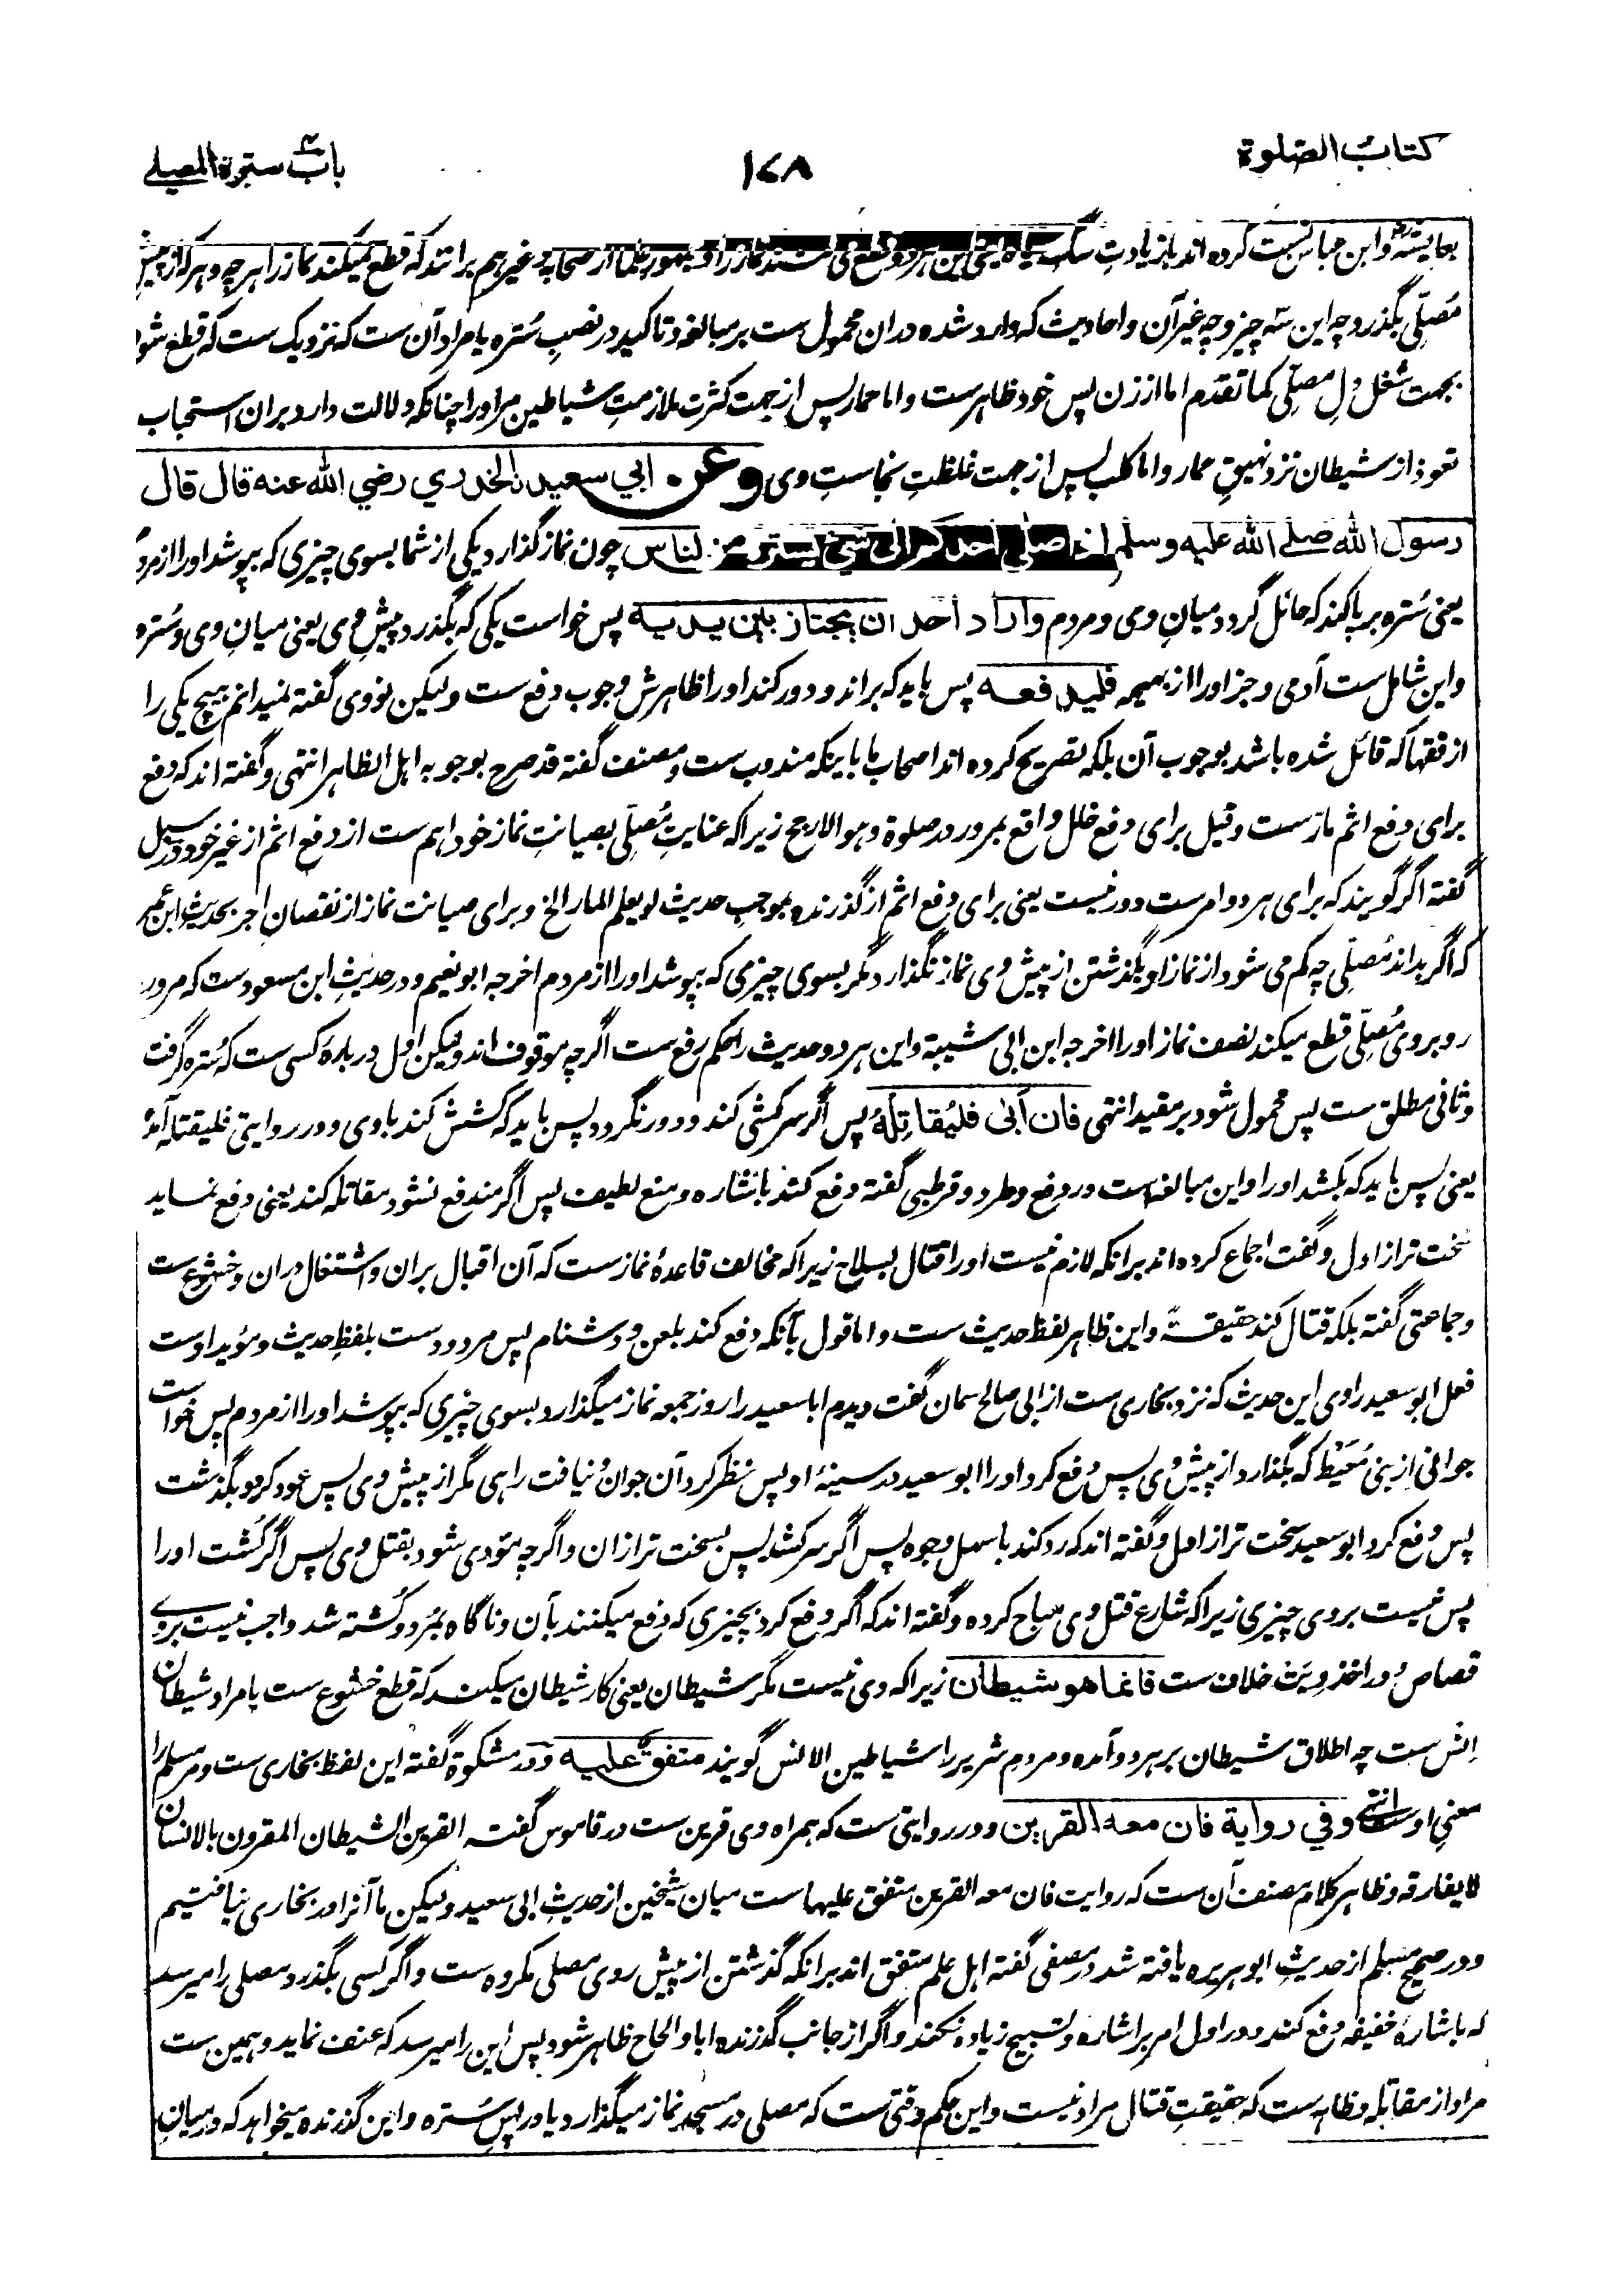 كتاب الصلوة
١٧٨
باب سترة المصلي
بعایشه وابن عباس نسبت کرده اند بزیادت سگ سیاه یعنی این هر دو قطع می کنند نماز را و جمهور علما از صحابه و غیر هم برانند که قطع نمیکند نماز را هر چه و هر که از پیش
مُصلّی بگذرد چه این سه چیز و چه غیر آن و احادیث که وارد شده دران محمول ست بر مبالغه و تاکید در نصبِ سُتره یا مراد آن ست که نزدیک ست که قطع شود
بجهت شغل دلِ مصلّی کما تقدم اما از زن پس خود ظاهرست و اما حمار پس از جهت کثرت ملازمتِ شیاطین مر او را چنانکه دلالت دارد بران استحباب
تعوذ از شیطان نزد نهیقِ حمار و اما کلب پس از جهت غلظتِ نجاستِ وی وعن أبي سعيد الخدري رضي الله عنه قال قال
رسول الله صلے الله عليه وسلم اذا صلى احدكم الى شيئ يستره من الناس چون نماز گذارد یکی از شما بسوی چیزی که بپوشد او را از مردم
یعنی سُتره بر پا کند که حائل گردد میانِ وی و مردم واراد احد ان يجتاز بين يديه پس خواست یکی که بگذرد پیشِ وی یعنی میانِ وی و سُتره
و این شامل ست آدمی و جز او را از بهیمه فليدفعه پس باید که براند و دور کند او را ظاهرش وجوب دفع ست و لیکن نووی گفته نمیدانم هیچ یکی را
از فقها که قائل شده باشد بوجوب آن بلکه تصریح کرده اند اصحاب ما باینکه مندوب ست و مصنف گفته قد صرح بوجوبه اهل الظاهر انتهی و گفته اند که دفع
برای دفع اثم مارّست و قیل برای دفع خلل واقع بمرور در صلوة و هو الارجح زیرا که عنایتِ مُصلّی بصیانتِ نماز خود اهم ست از دفع اثم از غیر خود و در سبل
گفته اگر گویند که برای هر دو امرست دور نیست یعنی برای دفع اثم از گذرنده بموجبِ حدیث لو یعلم المار الخ و برای صیانت نماز از نقصانِ اجر بحدیث ابن عمر
که اگر بداند مُصلّی چه کم می شود از نماز او بگذشتن از پیش وی نماز نگذارد مگر بسوی چیزی که بپوشد او را از مردم اخرجه ابو نعیم و در حدیثِ ابن مسعود ست که مرور
روبروی مُصلّی قطع میکند نصف نماز او را اخرجه ابن ابی شیبة و این هر دو حدیث را حکم رفع ست اگر چه موقوف اند و لیکن اول در بارهٔ کسی ست که سُتره گرفت
و ثانی مطلق ست پس محمول شود بر مقید انتهی فان أبى فليُقاتِلهُ پس اگر سرکشی کند و دور نگردد پس باید که کشش کند با وی و در روایتی فلیقتله آمده
یعنی پس باید که بکشد او را و این مبالغه است در دفع و طرد و قرطبی گفته دفع کند باشاره و منع لطیف پس اگر مندفع نشود مقاتله کند یعنی دفع نماید
سخت تر از اول و گفت اجماع کرده اند برانکه لازم نیست او را قتال بسلاح زیرا که مخالف قاعدهٔ نماز ست که آن اقبال بران و اشتغال دران و خشوع ست
و جماعتی گفته بلکه قتال کند حقیقةً و این ظاهر لفظ حدیث ست و اما قول بآنکه دفع کند بلعن و دشنام پس مردود ست بلفظِ حدیث و مؤید اوست
فعل ابو سعید راوی این حدیث که نزد بخاری ست از ابی صالح سمان گفت دیدم ابا سعید را روز جمعه نماز میگذارد بسوی چیزی که بپوشد او را از مردم پس خواست
جوانی از بنی مُعَیْط که بگذرد از پیش وی پس دفع کرد او را ابو سعید در سینهٔ او پس نظر کرد آن جوان و نیافت راهی مگر از پیش وی پس عود کرد و بگذشت
پس دفع کرد ابو سعید سخت تر از اول و گفته اند که رد کند باسهل وجوه پس اگر سر کشد پس بسخت تر ازان و اگر چه مؤدی شود بقتل وی پس اگر کُشت او را
پس نیست بر وی چیزی زیرا که شارع قتل وی مباح کرده و گفته اند که اگر دفع کرد بچیزی که دفع میکنند بآن و ناگاه بمُرد و کُشته شد واجب نیست بروے
قصاص و در اخذ دیَت خلاف ست فانما هو شيطان زیرا که وی نیست مگر شیطان یعنی کار شیطان میکند که قطع خشوع ست یا مراد شیطان
اِنس ست چه اطلاق شیطان بر هر دو آمده و مردمِ شریر را شیاطین الانس گویند متفقٌ عليه و در مشکوة گفته این لفظ بخاری ست و مر مسلم را
معنی اوست انتهے وفي رواية فان معه القرين و در روایتی ست که همراه وی قرین ست در قاموس گفته القرین الشیطان المقرون بالانسان
لا یفارقه و ظاهر کلام مصنف آن ست که روایت فان معه القرین متفق علیها ست میان شیخین از حدیثِ ابی سعید و لیکن ما آنرا در بخاری نیافتیم
و در صحیح مسلم از حدیثِ ابو هریره یافته شد در مصفی گفته اهل علم متفق اند برانکه گذشتن از پیش روی مصلی مکروه ست و اگر کسی بگذرد مصلی را میرسد
که باشارهٔ خفیفه دفع کند و در اول امر بر اشاره و تسبیح زیاده نکند و اگر از جانب گذرنده ابا و الحاح ظاهر شود پس این را میرسد که عنف نماید و همین ست
مراد از مقاتله و ظاهرست که حقیقتِ قتال مراد نیست و این حکم وقتی ست که مصلی در مسجد نماز میگذارد یا در پسِ سُتره و این گذرنده میخواهد که در میانِ